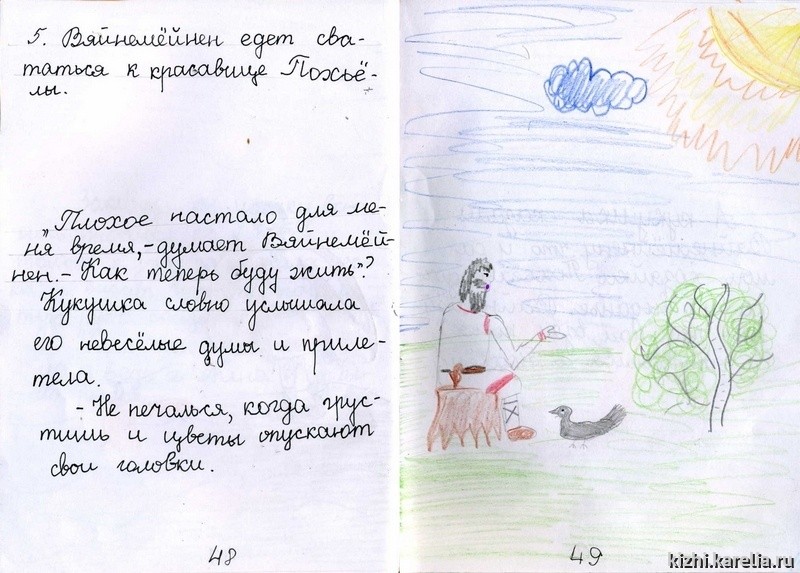 5. Вяйнемёйнен едет сва-
таться к красавице Похъё-
лы.
„Плохое настало для ме-
ня время, - думает Вяйнемёй-
нен. - Как теперь буду жить"?
Кукушка словно услышала
его невесёлые думы и приле-
тела.
- Не печалься, когда грус-
тишь и цветы опускают
свои головки.
48
49
kizhi.karelia.ru